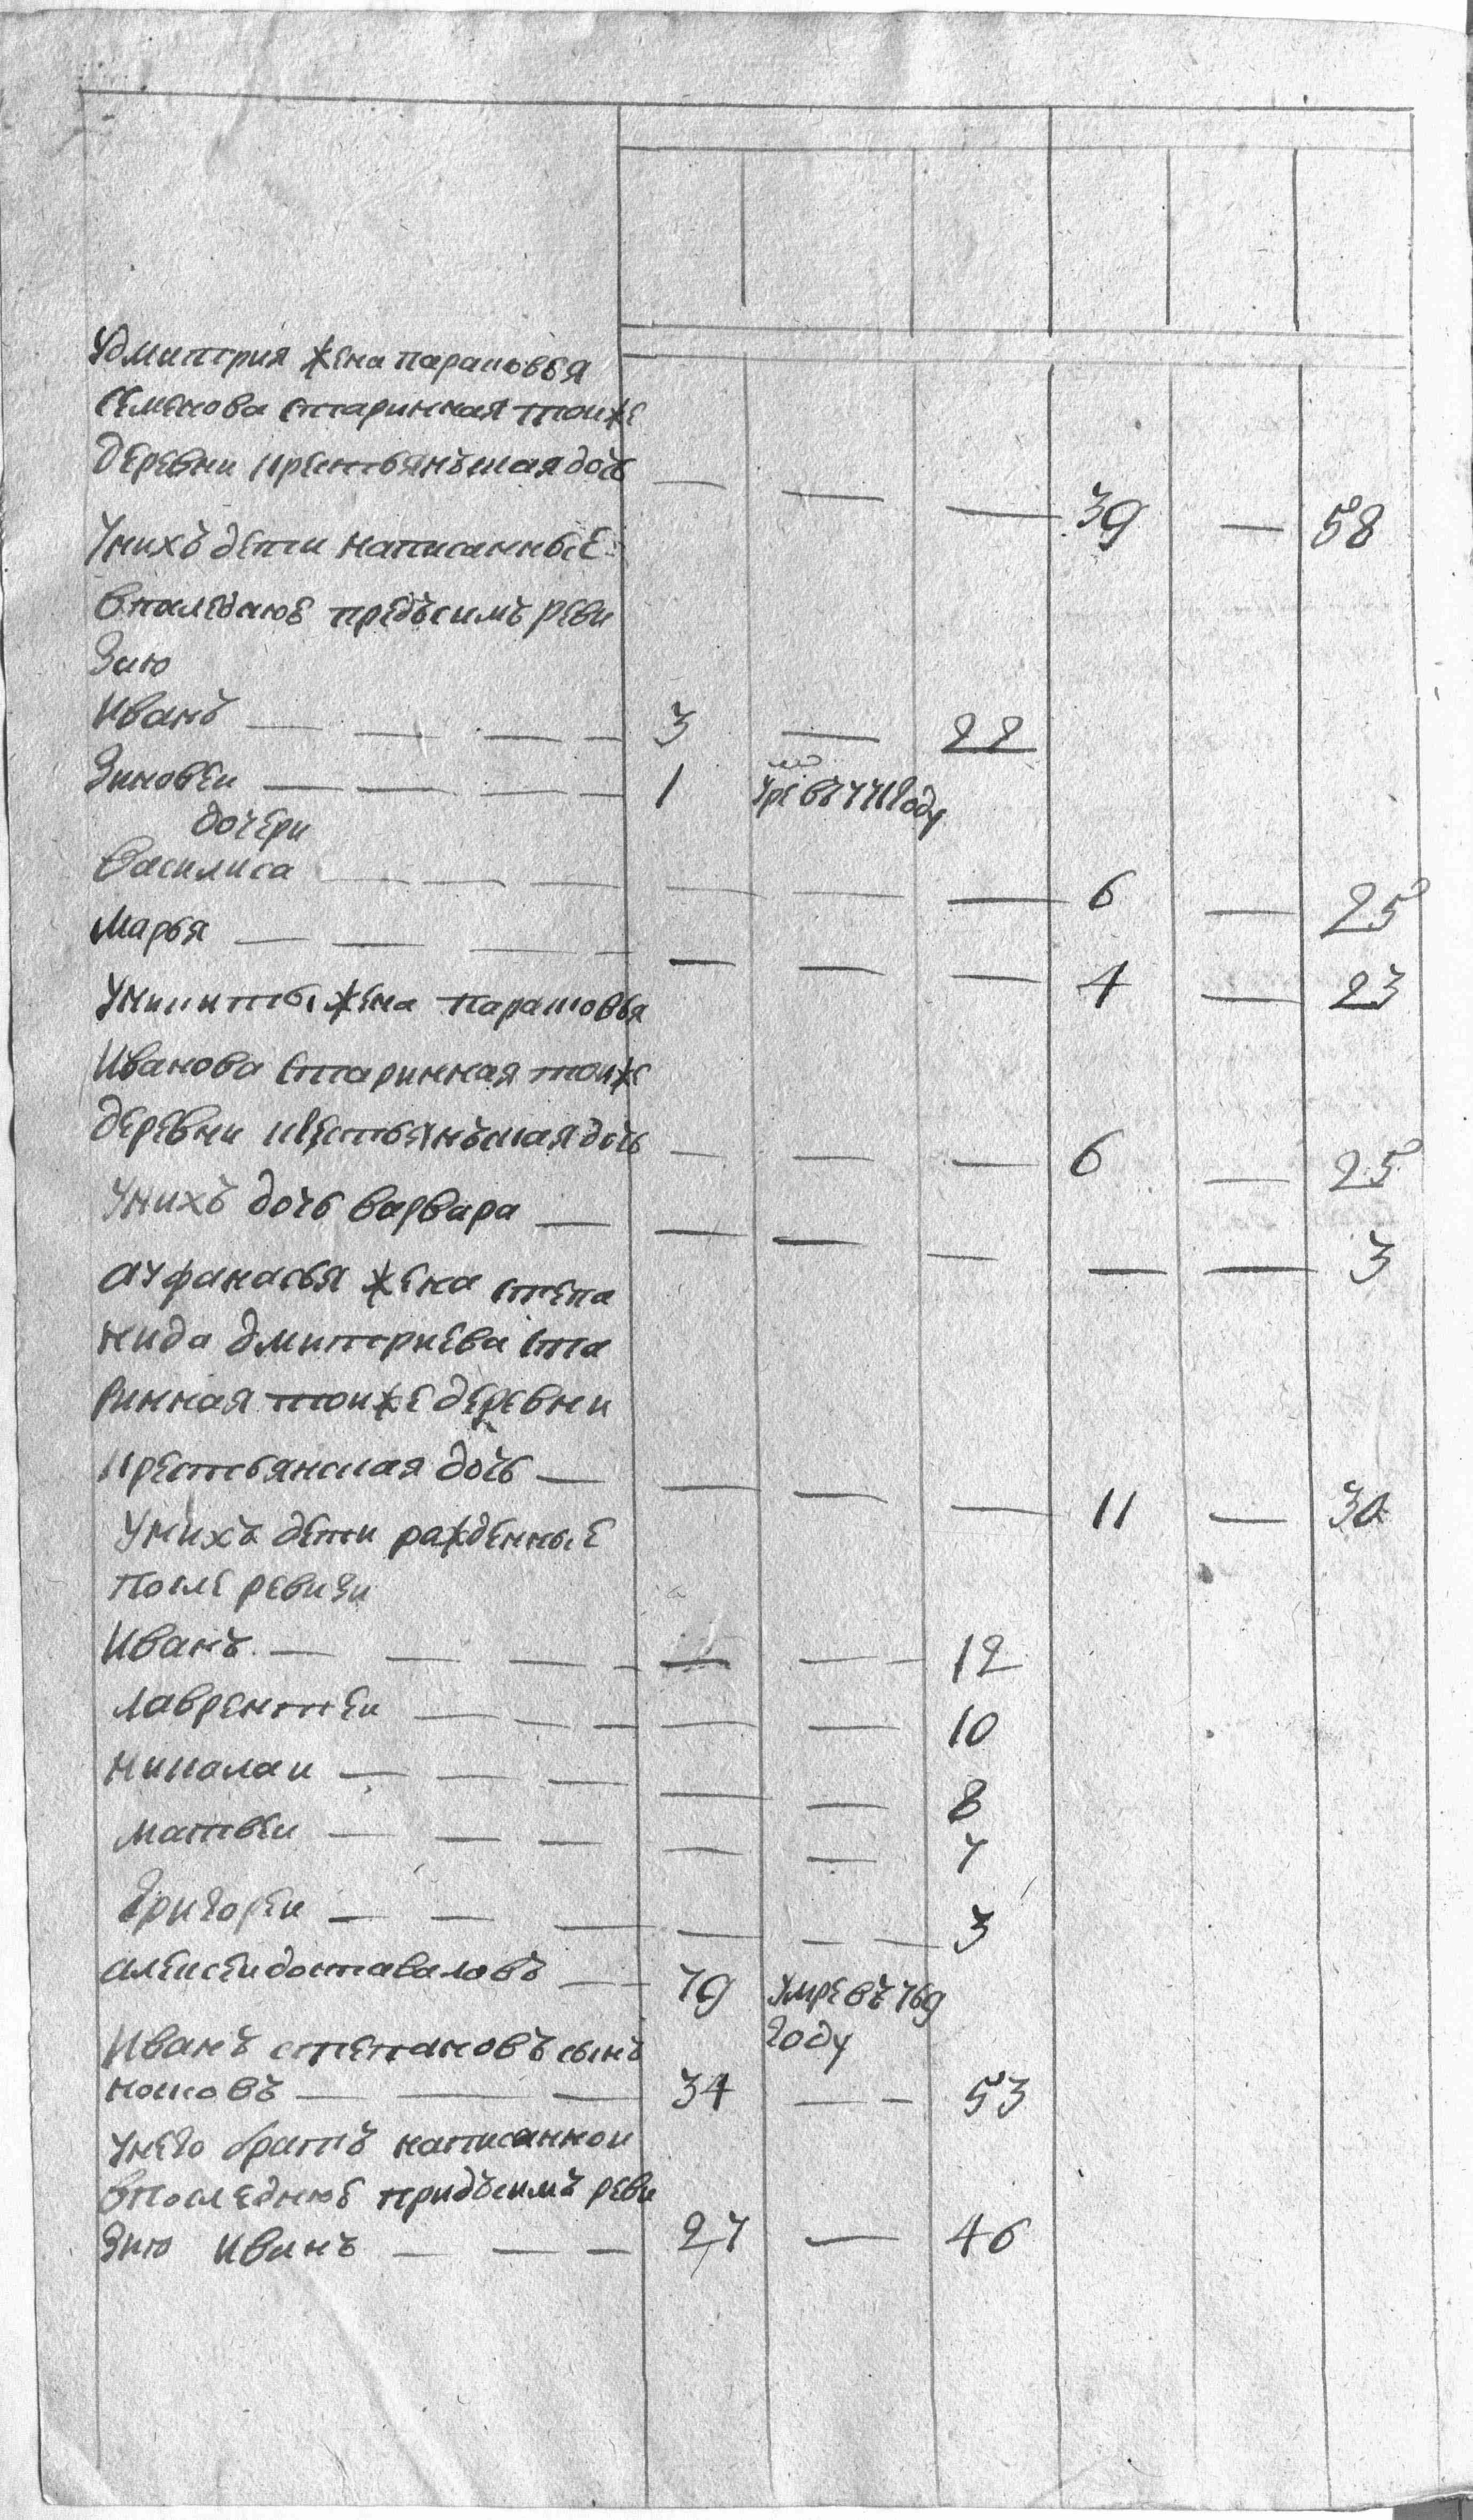 Удмитрия жена парасковья
Семенова старинная тоиже
деревни крестьянъская дочь — — — 39 — 58
Унихъ дети написанные
впаследнюе предъсимъ реви
зию
Иванъ — — — — 3 — 22
Зиновеи — — — — 1 умре въ 771 году
дочери
Василиса — — — — — — 6 — 25
Марья — — — — — — 4 — 23
Уникиты жена парасковья
Иванова старинная тоиже
деревни крестьянъская дочь — — — 6 — 25
Унихъ дочь варвара — — — — — — 3
Ауфанасья жена степа
нида дмитриева ста
ринная тоиже деревни
крестьянская дочь — — — — 11 — 30
Унихъ дети ражденные
после ревизи
Иванъ — — — — — — — 12
Лаврентеи — — — — — — 10
Никалаи — — — — — 8
Матвеи — — — — — 7
Григореи — — — — — — 3
алексеи доставаловъ — — 79 умре въ 769
году
Иванъ степановъ сынъ
— — — 34 — — 53
Унего братъ написаннои
впоследнюе придъсимъ реви
зию Иванъ — — — 27 — 46